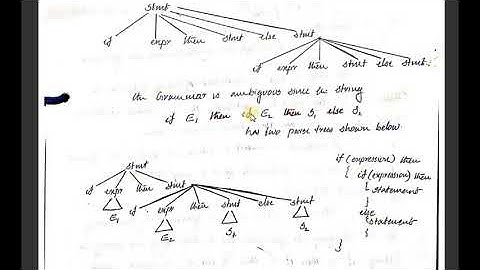 stmt
if expr then stmt else stmt
if expr then stmt else stmt
The Grammar is ambiguous since the string
if E1 then if E2 then S1 else S2
has two parse trees shown below
stmt
if expr then stmt
E1 if expr then stmt else stmt
E2 S1 S2
if (expression) then
{ if (expression) then
{ statement
}
else
{ statement
}
}